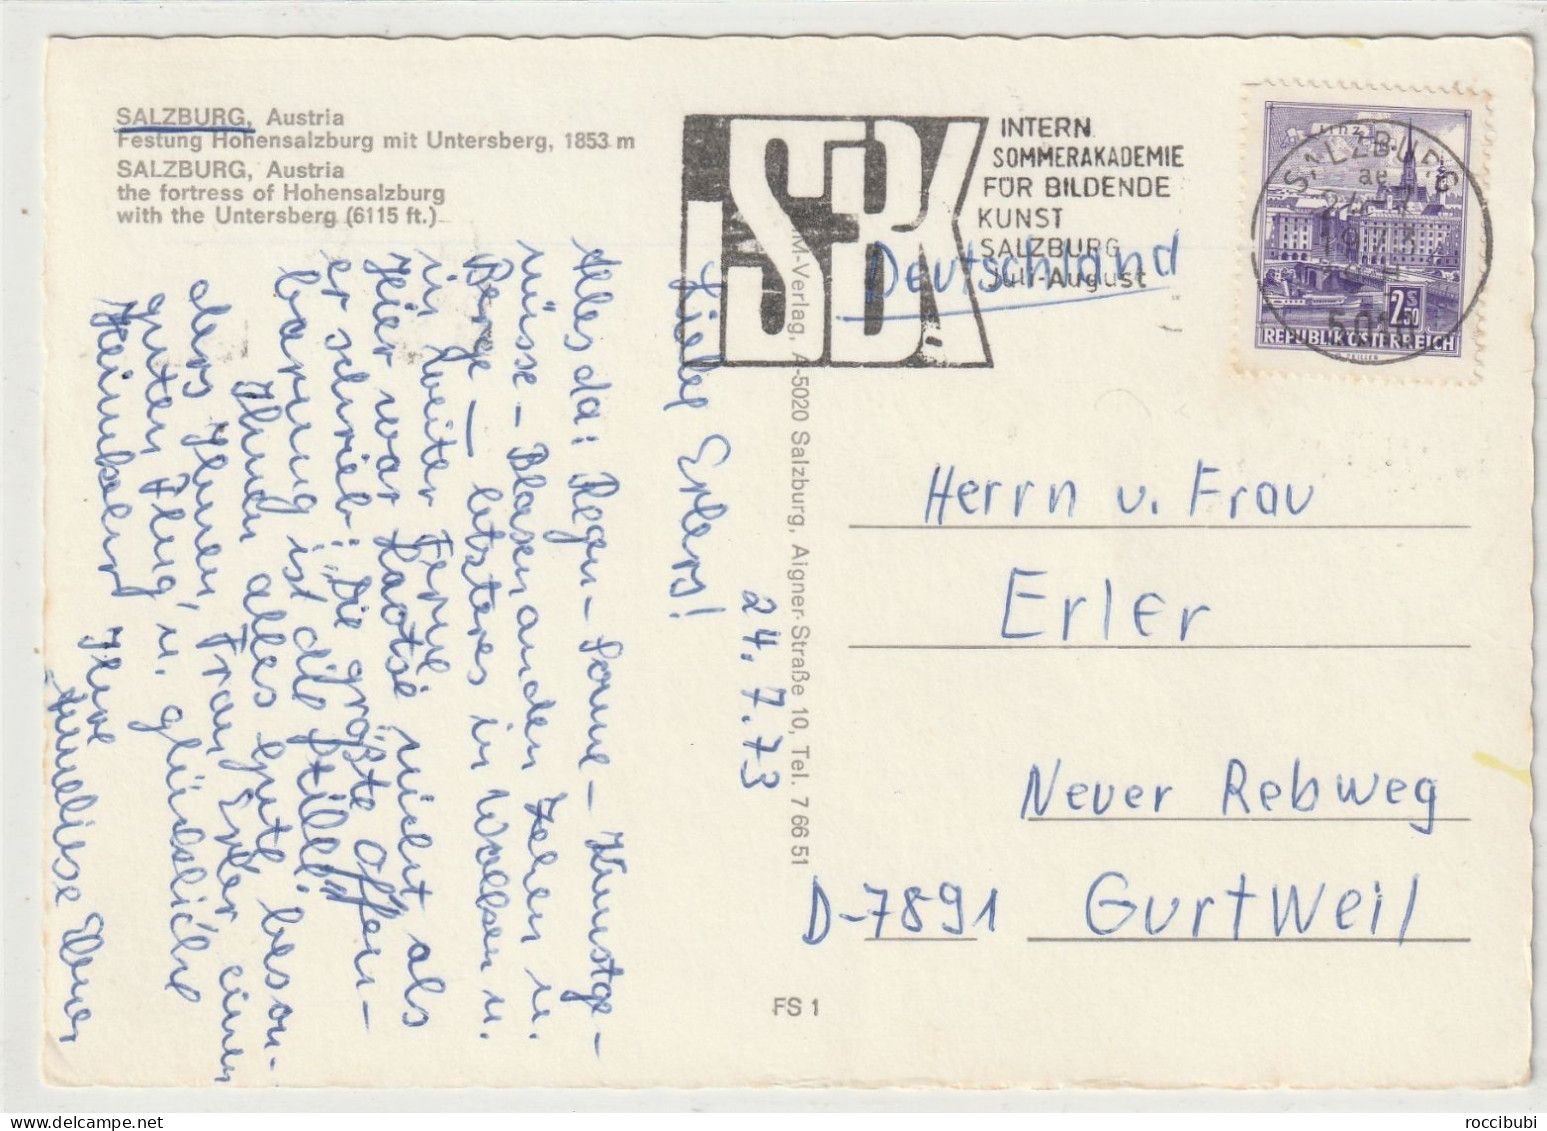 SALZBURG, Austria
Festung Hohensalzburg mit Untersberg, 1853 m
SALZBURG, Austria
the fortress of Hohensalzburg
with the Untersberg (6115 ft.)
ISBK
INTERN.
SOMMERAKADEMIE
FÜR BILDENDE
KUNST
SALZBURG
Juli-August
SALZBURG
2 S 50
REPUBLIK ÖSTERREICH
24.7.73
Liebe Erlers!
Alles da: Regen – Sonne – Kunstge-
nüsse – Blasen an den Zehen u.
Berge – letzteres in Wolken u.
in weiter Ferne.
Hier war Laotse nicht, als
er schrieb: Die größte Offen-
barung ist die Stille!
Ihnen alles Gute beson-
ders Ihnen, Frau Erler einen
guten Flug, u. glückliche
Heimkehr Ihre
Anneliese
Deutschland
Herrn u. Frau
Erler
Neuer Rebweg
D-7891 Gurtweil
M-Verlag, A-5020 Salzburg, Aigner-Straße 10, Tel. 7 66 51
FS 1
roccibubi